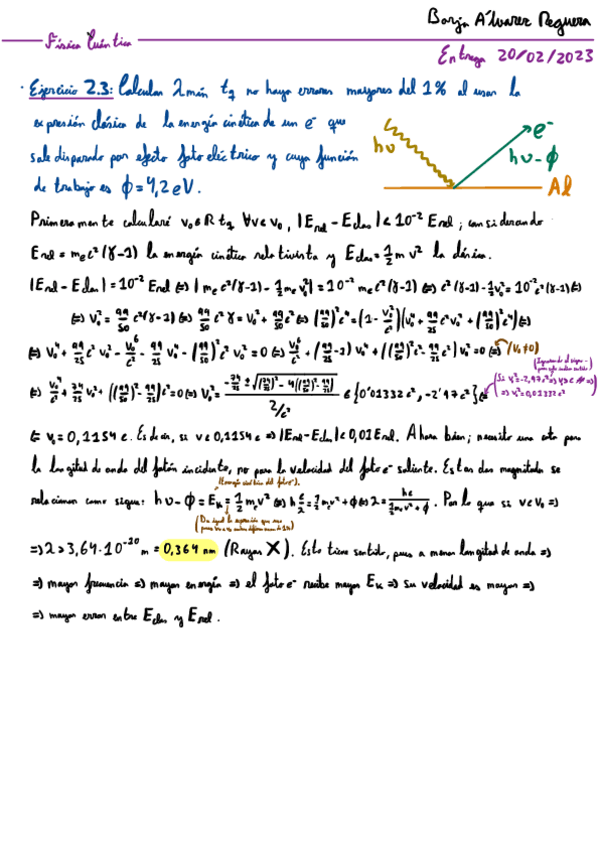 Borja Álvarez Reguera
Física Cuántica
Entrega 20/02/2023
· Ejercicio 2.3: Calcular λmín tq no haya errores mayores del 1% al usar la
expresión clásica de la energía cinética de un e⁻ que
sale disparado por efecto fotoeléctrico y cuya función
de trabajo es ϕ=4,2eV.
hν
e⁻
hν-ϕ
Al
Primeramente calcularé v₀∈ℝ tq ∀v<v₀, |Erel - Eclas| < 10⁻² Erel; considerando
Erel = mₑc²(γ-1) la energía cinética relativista y Eclas = ½ m v² la clásica.
|Erel - Eclas| = 10⁻² Erel ⇔ |mₑc²(γ-1) - ½ mₑ v₀²| = 10⁻² mₑc²(γ-1) ⇔ c²(γ-1) - ½ v₀² = 10⁻² c²(γ-1) ⇔
⇔ v₀² = 99/50 c²(γ-1) ⇔ 99/50 c² γ = v₀² + 99/50 c² ⇔ (99/50)² c⁴ = (1 - v₀²/c²)(v₀⁴ + 99/25 c² v₀² + (99/50)² c⁴) ⇔
⇔ v₀⁴ + 99/25 c² v₀² - v₀⁶/c² - 99/25 v₀⁴ - (99/50)² c² v₀² = 0 ⇔ v₀⁶/c² + (99/25 - 1) v₀⁴ + ((99/50)² c² - 99/25 c²) v₀² = 0 ⇔ (v₀≠0)
⇔ v₀⁴/c² + 74/25 v₀² + ((99/50)² - 99/25) c² = 0 ⇔ v₀² = ∈ {0'01332c², -2'97c²} ⇔
⇒ v₀² = 0,01332c²
⇔ v₀ = 0,1154 c. Es decir, si v<0,1154c ⇒ |Erel - Eclas| < 0,01 Erel. Ahora bien; necesito una cota para
la longitud de onda del fotón incidente, no para la velocidad del foto e⁻ saliente. Estas dos magnitudes se
(Energía cinética del foto e⁻).
relacionan como sigue: hν - ϕ = Eₖ = ½ mₑv² ⇔ h c/λ = ½ mₑv² + ϕ ⇔ λ = hc/(½ mₑv² + ϕ). Por lo que si v<v₀ ⇒
⇒ λ > 3,64·10⁻¹⁰ m = 0,364 nm (Rayos X). Esto tiene sentido, pues a menor longitud de onda ⇒
⇒ mayor frecuencia ⇒ mayor energía ⇒ el foto e⁻ recibe mayor Eₖ ⇒ su velocidad es mayor ⇒
⇒ mayor error entre Eclas y Erel.